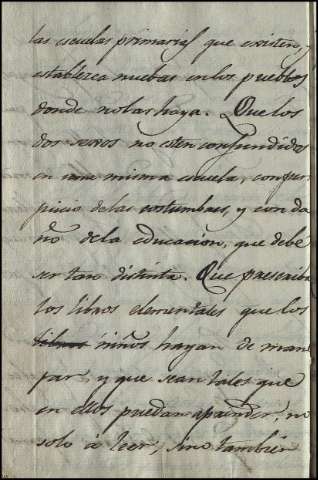 las escuelas primarias que existen, y
establezca nuebas en los pueblos
donde no las haya. Que los
dos sexos no esten confundidos
en una misma escuela, con per
juicio de las costumbres, y con da
ño de la educacion, que debe
ser tan distinta. Que prescriba
los libros elementales que los
libros niños hayan de man
par, y que sean tales que
en ellos puedan aprender, no
solo á leer, sino tambien